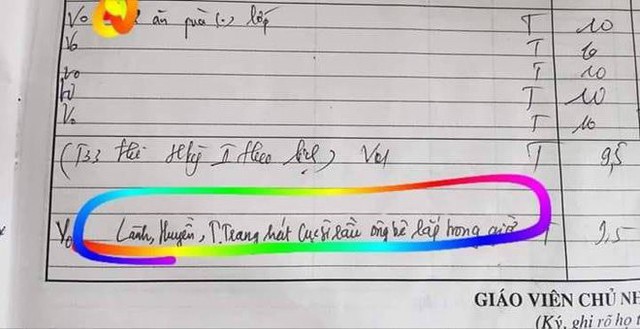 V0 ăn quà (.) lớp T 10
V0 T 10
V0 T 10
V0 T 10
V0 T 10
(T33 thi Hkỳ I theo lịch) V01 T 9,5
V0 Lãnh, Huyền, T.Trang hát Cục sì lầu ông bê lắp trong giờ T 9,5
GIÁO VIÊN CHỦ NH
(Ký, ghi rõ họ t